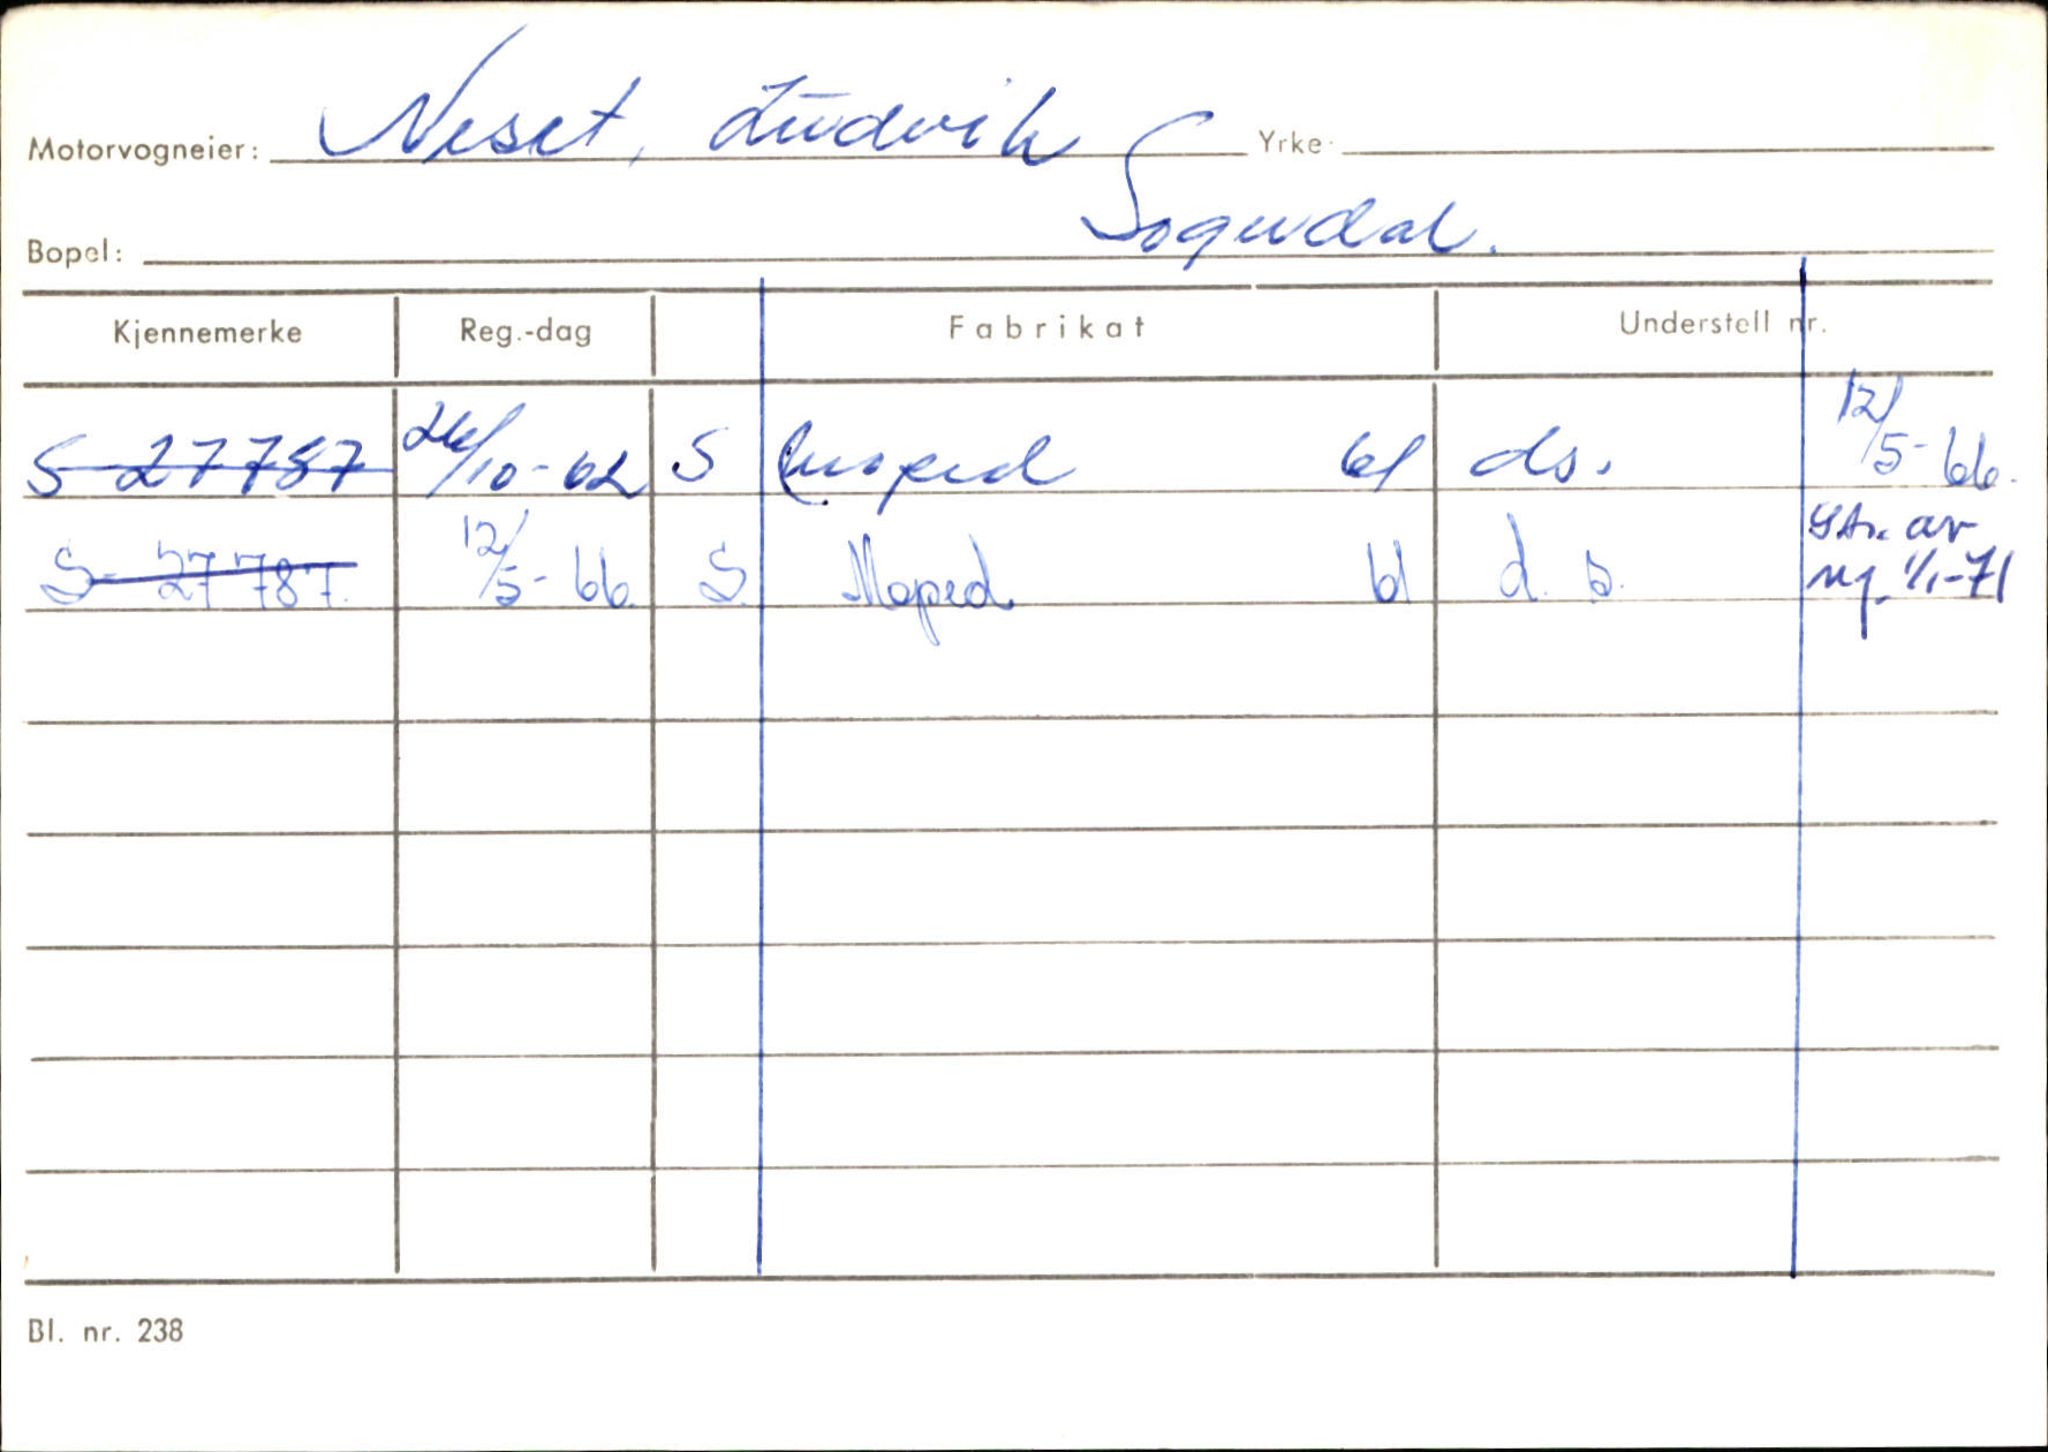 Motorvogneier: Neset, Ludvik Yrke:
Bopel: Sogndal.
Kjennemerke Reg.-dag Fabrikat Understell nr.
S 27787 26/10-62 S Moped 61 ds. 12/5-66.
S- 27787. 12/5-66. S. Moped. 61 d. s. Str. av
rg. 1/1-71
Bl. nr. 238